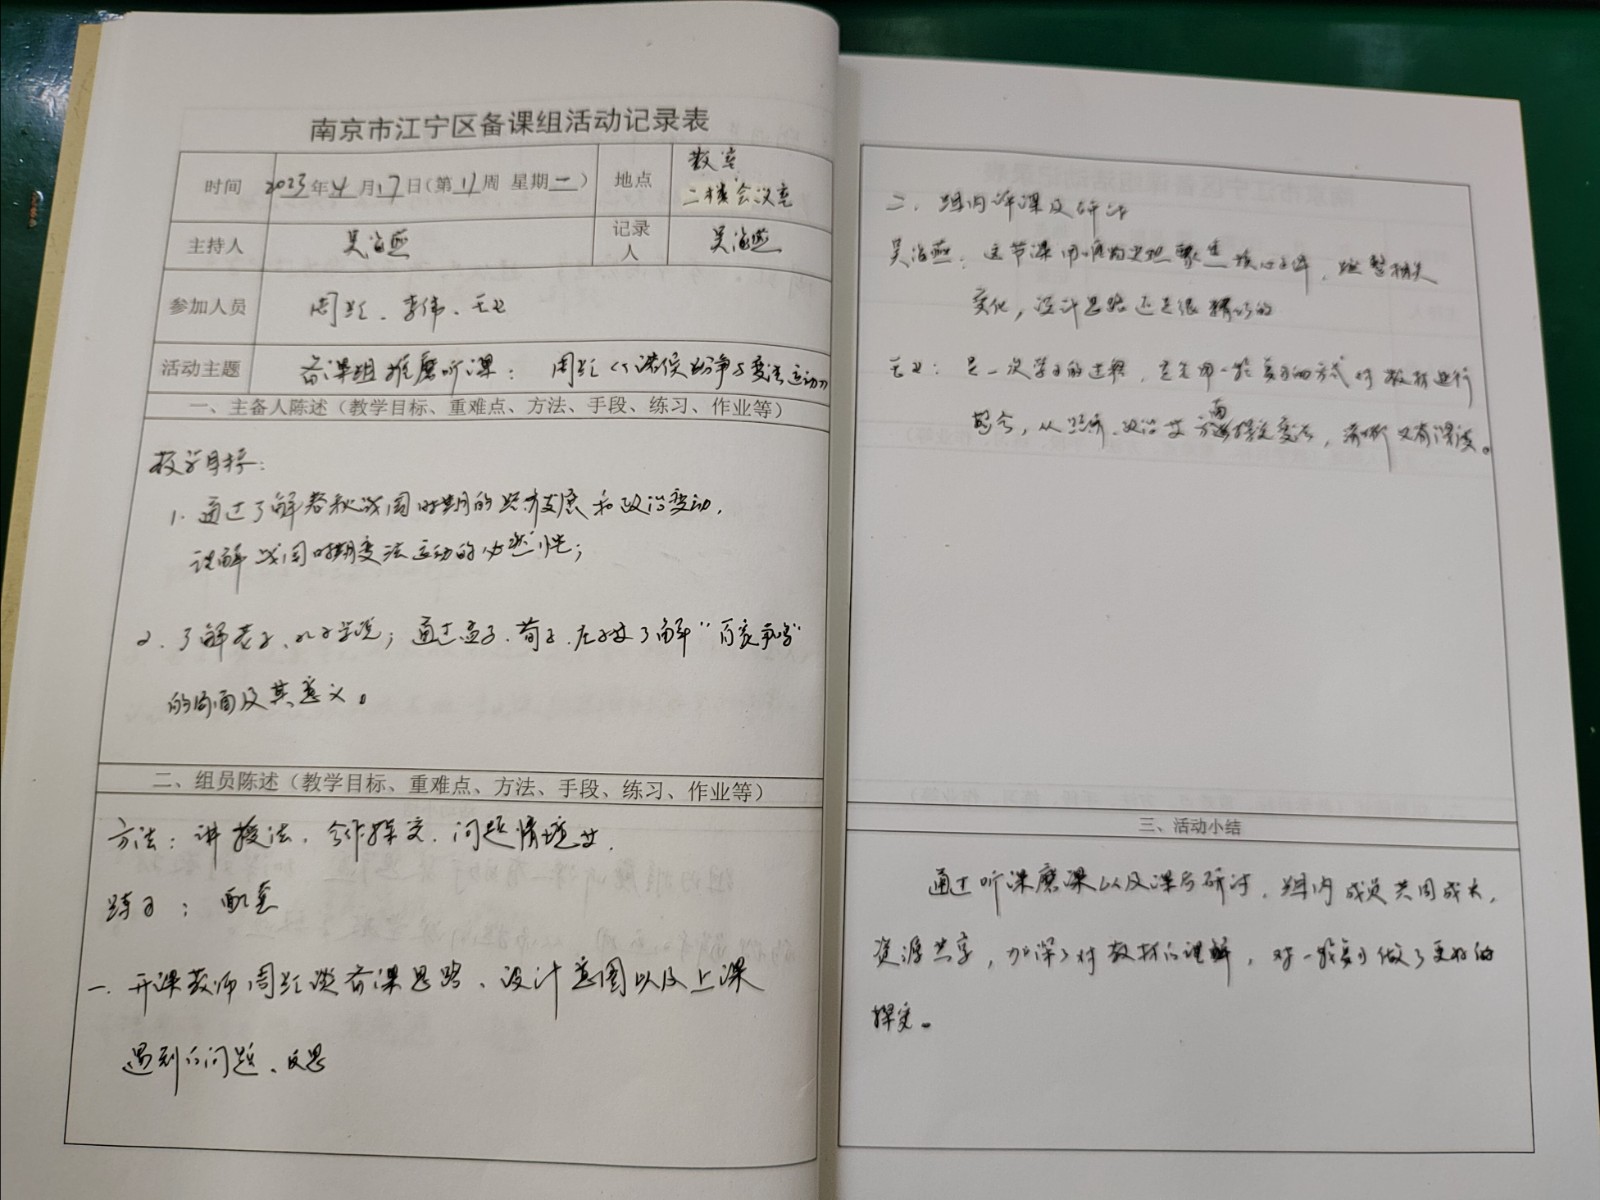 南京市江宁区备课组活动记录表
时间 2023年4月17日(第11周 星期一) 地点 教室 二楼会议室
主持人 吴海燕 记录人 吴海燕
参加人员 周 、李伟、王
活动主题 备课组推磨听课： 周 《诸侯纷争与变法运动》
一、主备人陈述（教学目标、重难点、方法、手段、练习、作业等）
教学目标：
1. 通过了解春秋战国时期的经济发展和政治变动，
理解战国时期变法运动的必然性；
2. 了解老子、孔子学说；通过孟子、荀子、庄子等了解“百家争鸣”
的局面及其意义。
二、组员陈述（教学目标、重难点、方法、手段、练习、作业等）
方法：讲授法，合作探究，问题情境等.
练习： 配套
一. 开课教师周 谈备课思路、设计意图以及上课
遇到的问题、反思
二、组内评课及研讨
吴海燕：这节课 聚焦核心 ，
变化，设计思路还是很精巧的
王 ：是一次学习的过程， 用一轮复习的方式对教材进行
整合，从经济、政治等方面探究变法，清晰又有深度。
三、活动小结
通过听课磨课以及课后研讨，组内成员共同成长，
资源共享，加深了对教材的理解，对一轮复习做了更好的
探究。